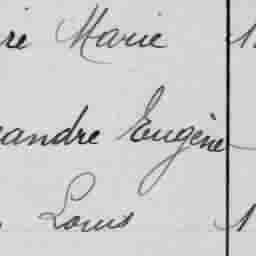 re Marie 1
andre Eugène
Louis 1